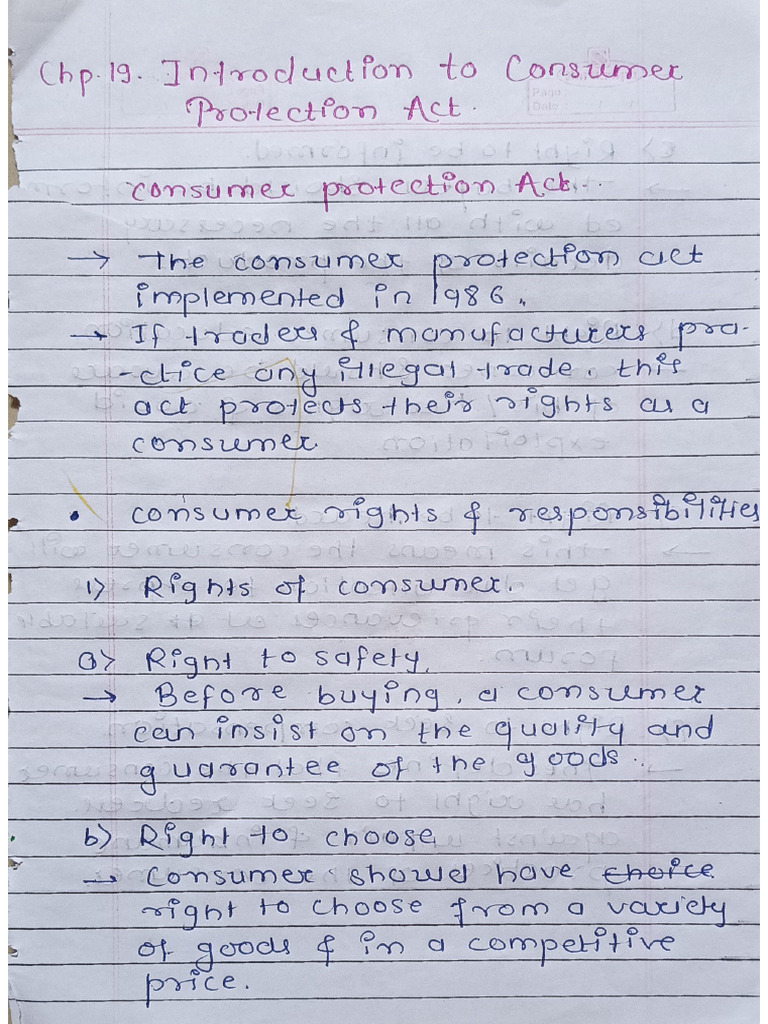 Chp.19. Introduction to Consumer
Protection Act.
Page
Date
consumer protection Act.
→ The consumer protection act
implemented in 1986.
→ If traders & manufacturers pra-
-ctice any illegal trade, this
act protects their rights as a
consumer
• consumer rights & responsibilities
1) Rights of consumer.
a) Right to safety.
→ Before buying, a consumer
can insist on the quality and
guarantee of the goods.
b) Right to choose
→ Consumer should have choice
right to choose from a variety
of goods & in a competitive
price.